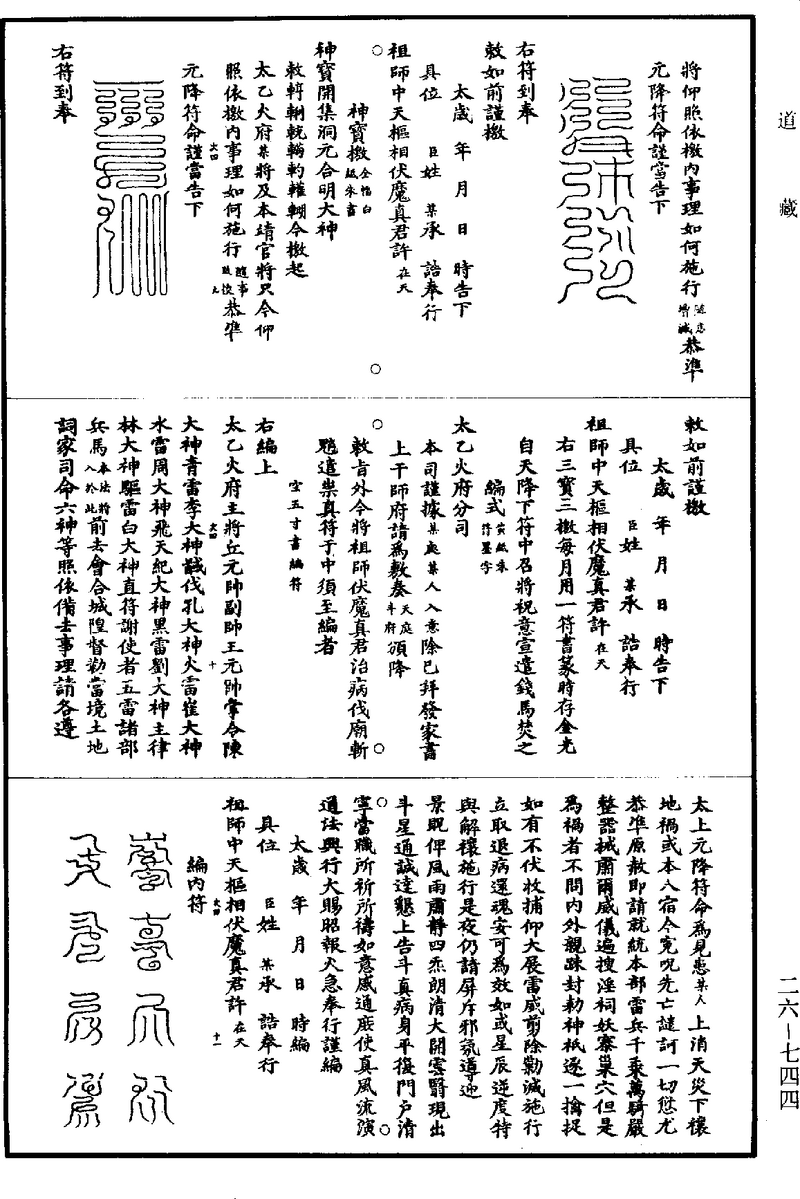 道藏
將仰照依檄內事理如何施行隨意增減恭準
元降符命謹當告下
右符到奉
敕如前謹檄
太歲年月日時告下
具位臣姓某承誥奉行
祖師中天樞相伏魔真君許在天
神寶檄金恪白紙朱書
神寶開集洞元合明大神
太乙火府某將及本靖官將只今仰
照依檄內事理如何施行隨事改換恭準
大四
九
元降符命謹當告下
右符到奉
敕如前謹檄
太歲年月日時告下
具位臣姓某承誥奉行
祖師中天樞相伏魔真君許在天
右三寶三檄每月用一符書篆時存金光
自天降下符中召將祝意宣遣錢馬焚之
編式黃紙朱符墨字
太乙火府分司
本司謹據某處某人入意除已拜發家書
上干師府請為敷奏天庭斗府頒降
敕旨外今將祖師伏魔真君治病伐廟斬
魈遣祟真符于中須至編者
空五寸書編符
右編上
大四
十
太乙火府主將丘元帥副帥王元帥掌令陳
大神青雷李大神馘伐孔大神火雷崔大神
水雷周大神飛天紀大神黑雷劉大神主律
林大神驅雷白大神直符謝使者五雷諸部
兵馬奉法將入於此前去會合城隍督勒當境土地
詞家司命六神等照依備去事理請各遵
太上元降符命為見患某人上消天災下禳
地禍或本人宿今冤呪先亡譴訶一切愆尤
恭準原赦即請就統本部雷兵千乘萬騎嚴
整器械肅爾威儀遍搜淫祠妖寨巢穴但是
為禍者不問內外親踈封勅神祇逐一擒捉
如有不伏收捕仰大展雷威剪除勦滅施行
立取退病還魂安可為效如或星辰逆度特
與解禳施行是夜仍請屏斥邪氛導迎
景貺俾風雨肅靜四炁朗清大開雲翳現出
斗星通誠達懇上告斗真病身平復門戶清
寧當職所祈所禱如意感通庶使真風流演
道法興行大賜昭報火急奉行謹編
太歲年月日時編
具位臣姓某承誥奉行
祖師中天樞相伏魔真君許在天
大四
十一
編內符
二六—七四四